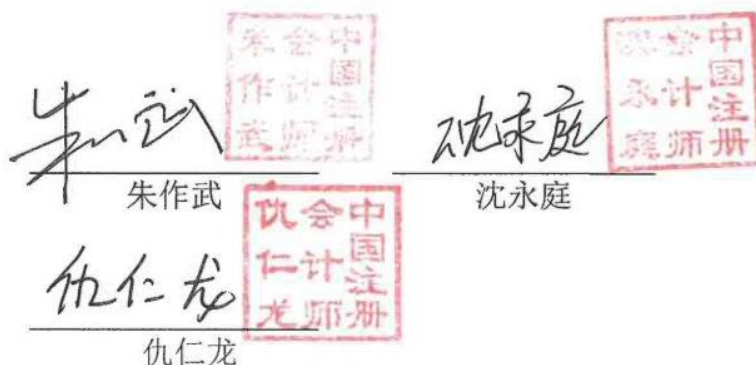 朱作武
中国注册
会计师
朱作武
朱作武
沈永庭
中国注册
会计师
沈永庭
沈永庭
仇仁龙
中国注册
会计师
仇仁龙
仇仁龙